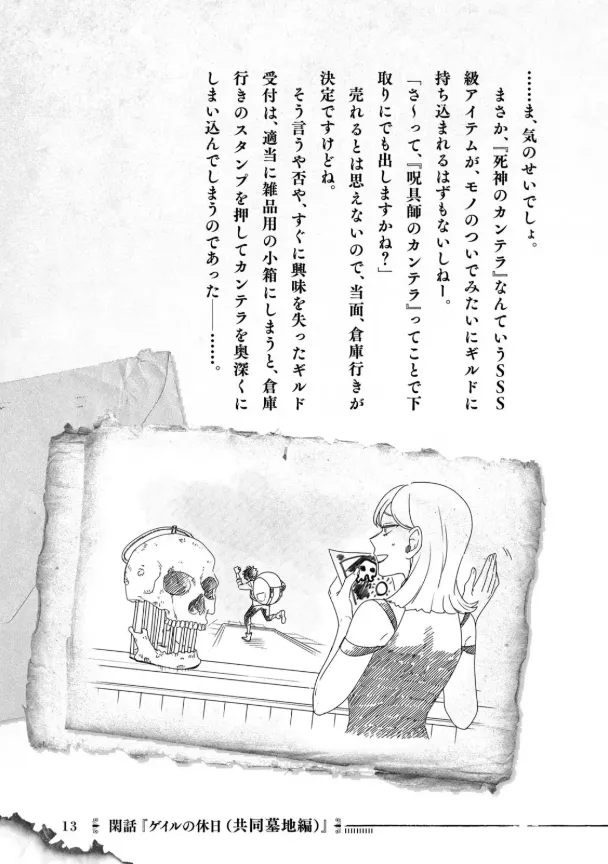 ……ま、気のせいでしょ。
まさか、『死神のカンテラ』なんていうSSS
級アイテムが、モノのついでみたいにギルドに
持ち込まれるはずもないしねー。
「さ〜って、『呪具師のカンテラ』ってことで下
取りにでも出しますかね？」
売れるとは思えないので、当面、倉庫行きが
決定ですけどね。
そう言うや否や、すぐに興味を失ったギルド
受付は、適当に雑品用の小箱にしまうと、倉庫
行きのスタンプを押してカンテラを奥深くに
しまい込んでしまうのであった――……。
13 閑話『ゲイルの休日（共同墓地編）』